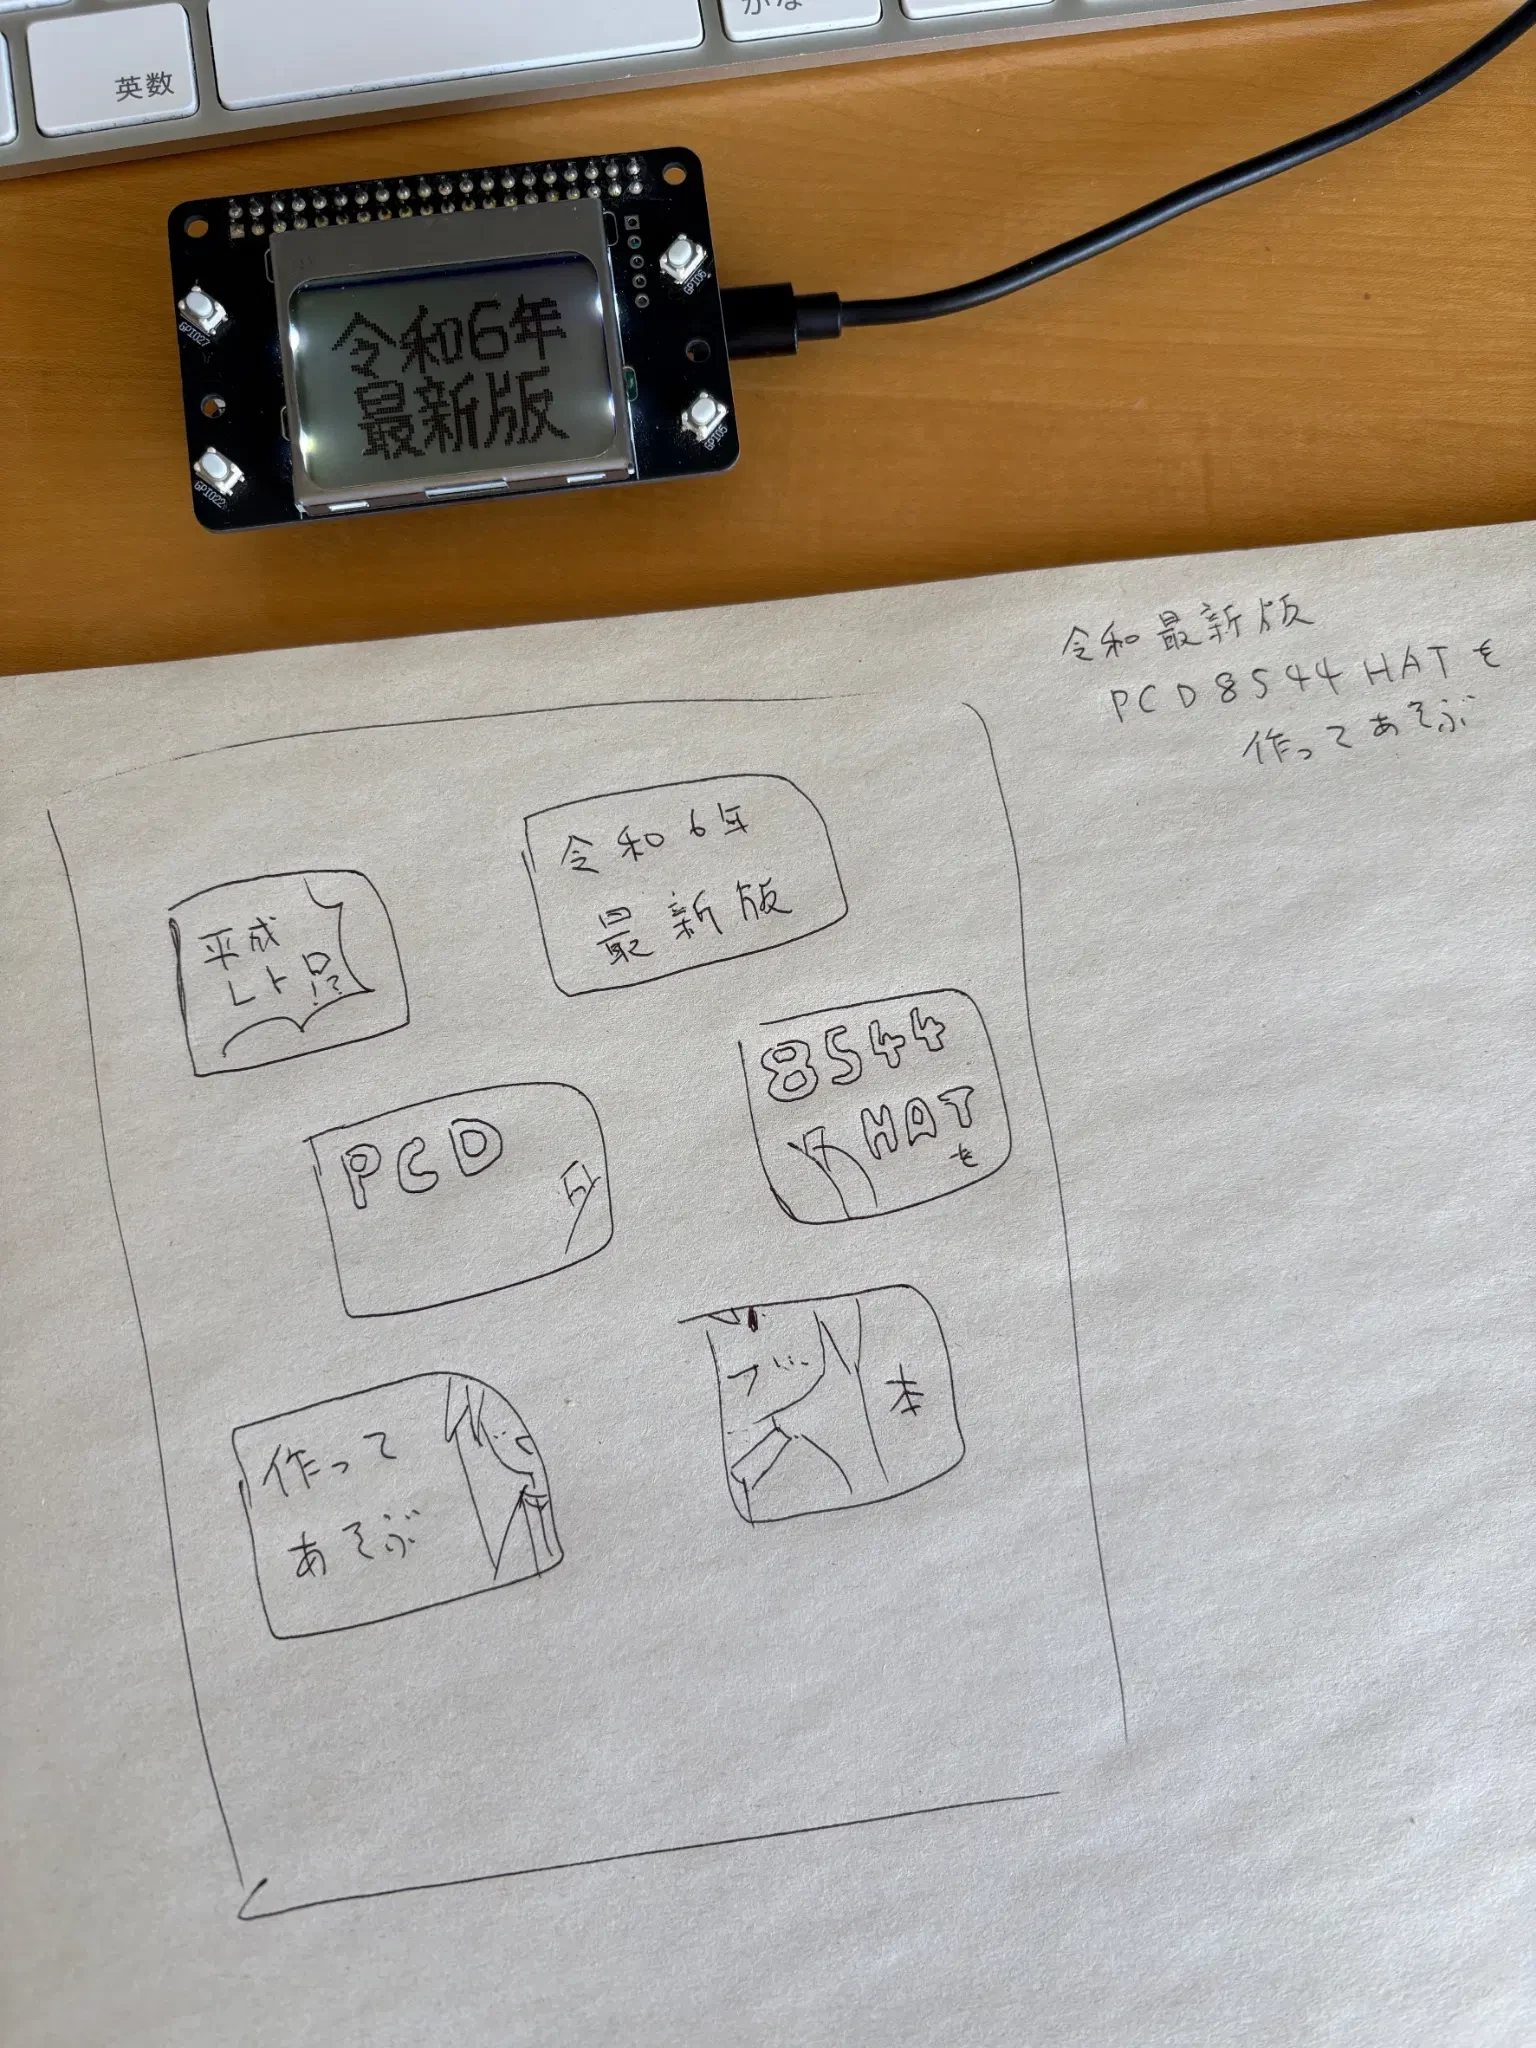 英数
かな
GPIO27
GPIO6
GPIO22
GPIO5
令和6年
最新版
令和最新版
PCD8544HATを
作ってあそぶ
令和6年
最新版
平成
レトロ
!?
8544
HAT
を
PCD
作って
あそぶ
本